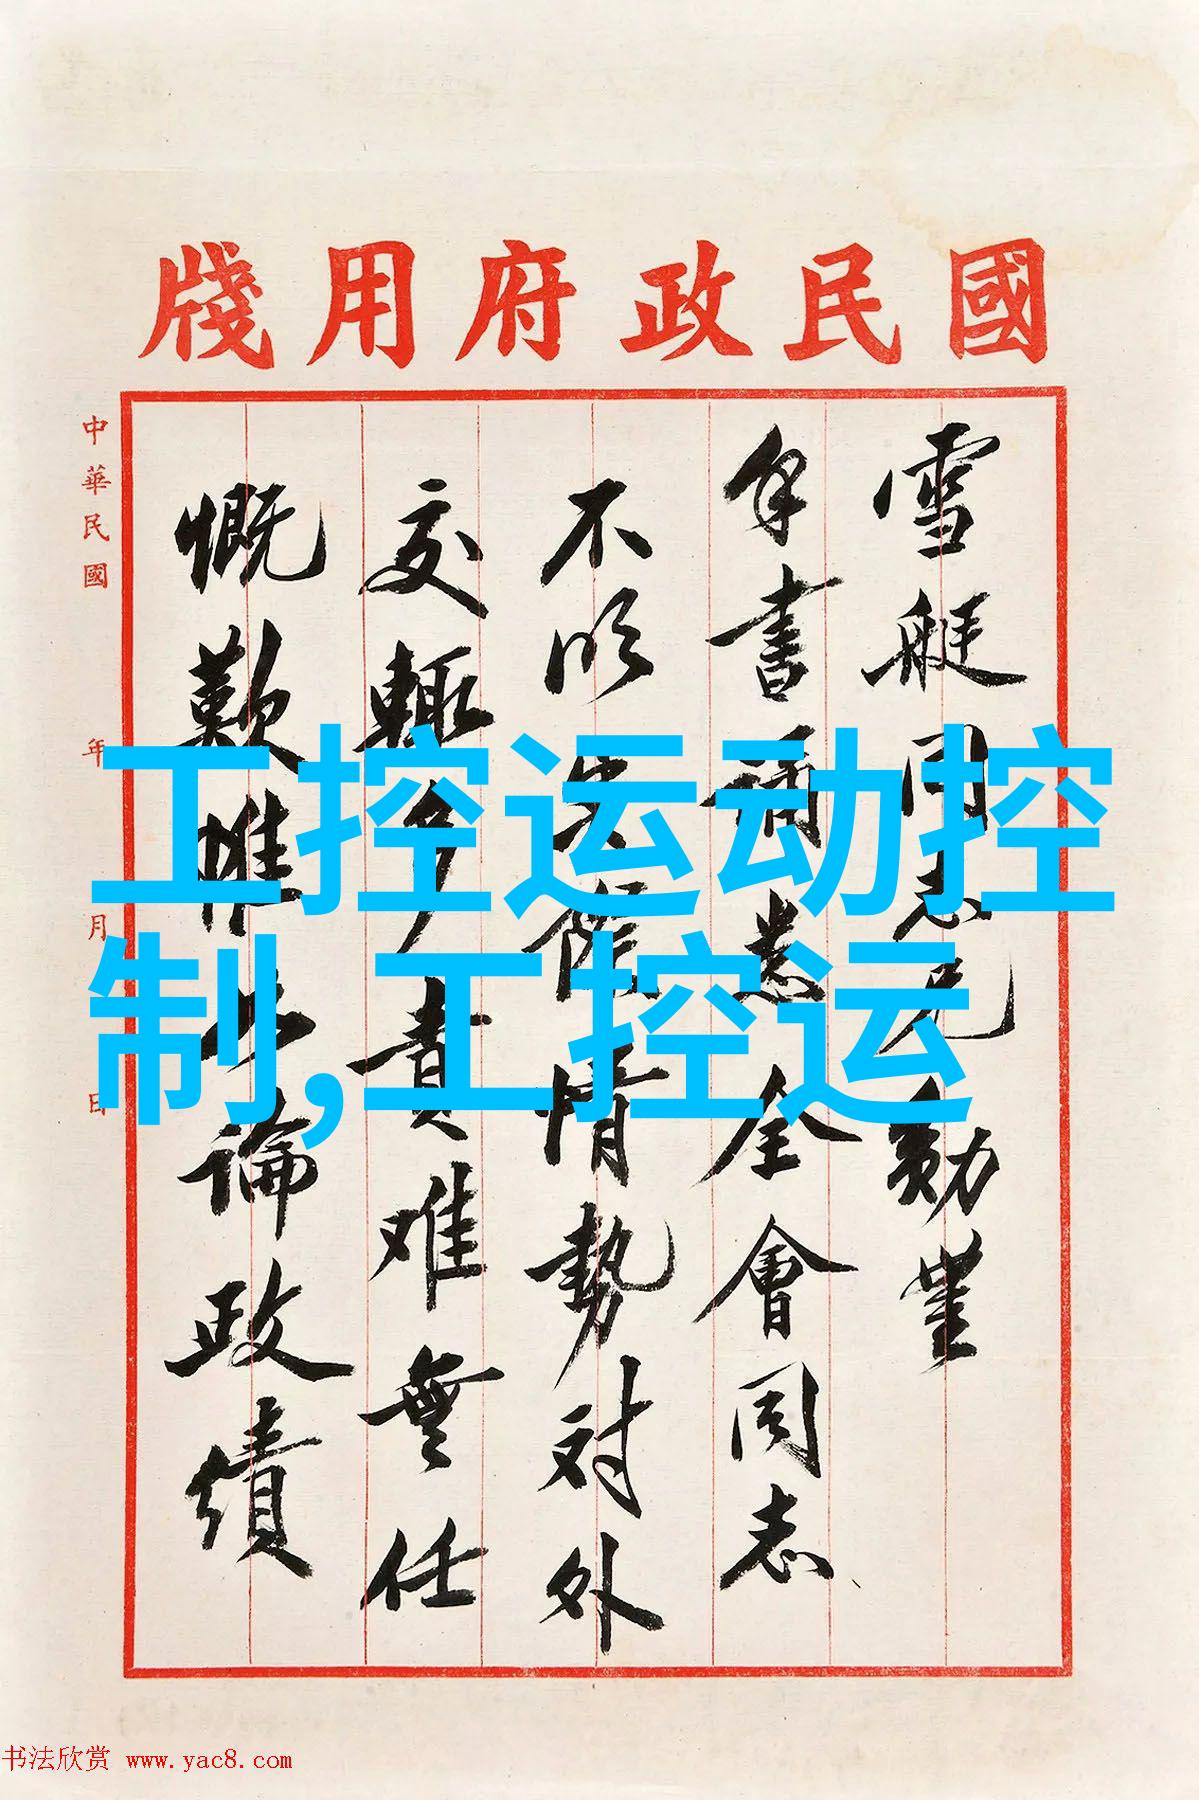 國民政府用牋
雪艇同志兄勛鑒
手書誦悉全會同志
不明 情勢對外
交輒多責难無任
慨歎惟 論政績
中華民國 年 月 日
工控运动控
制,工控运
书法欣赏 www.yac8.com